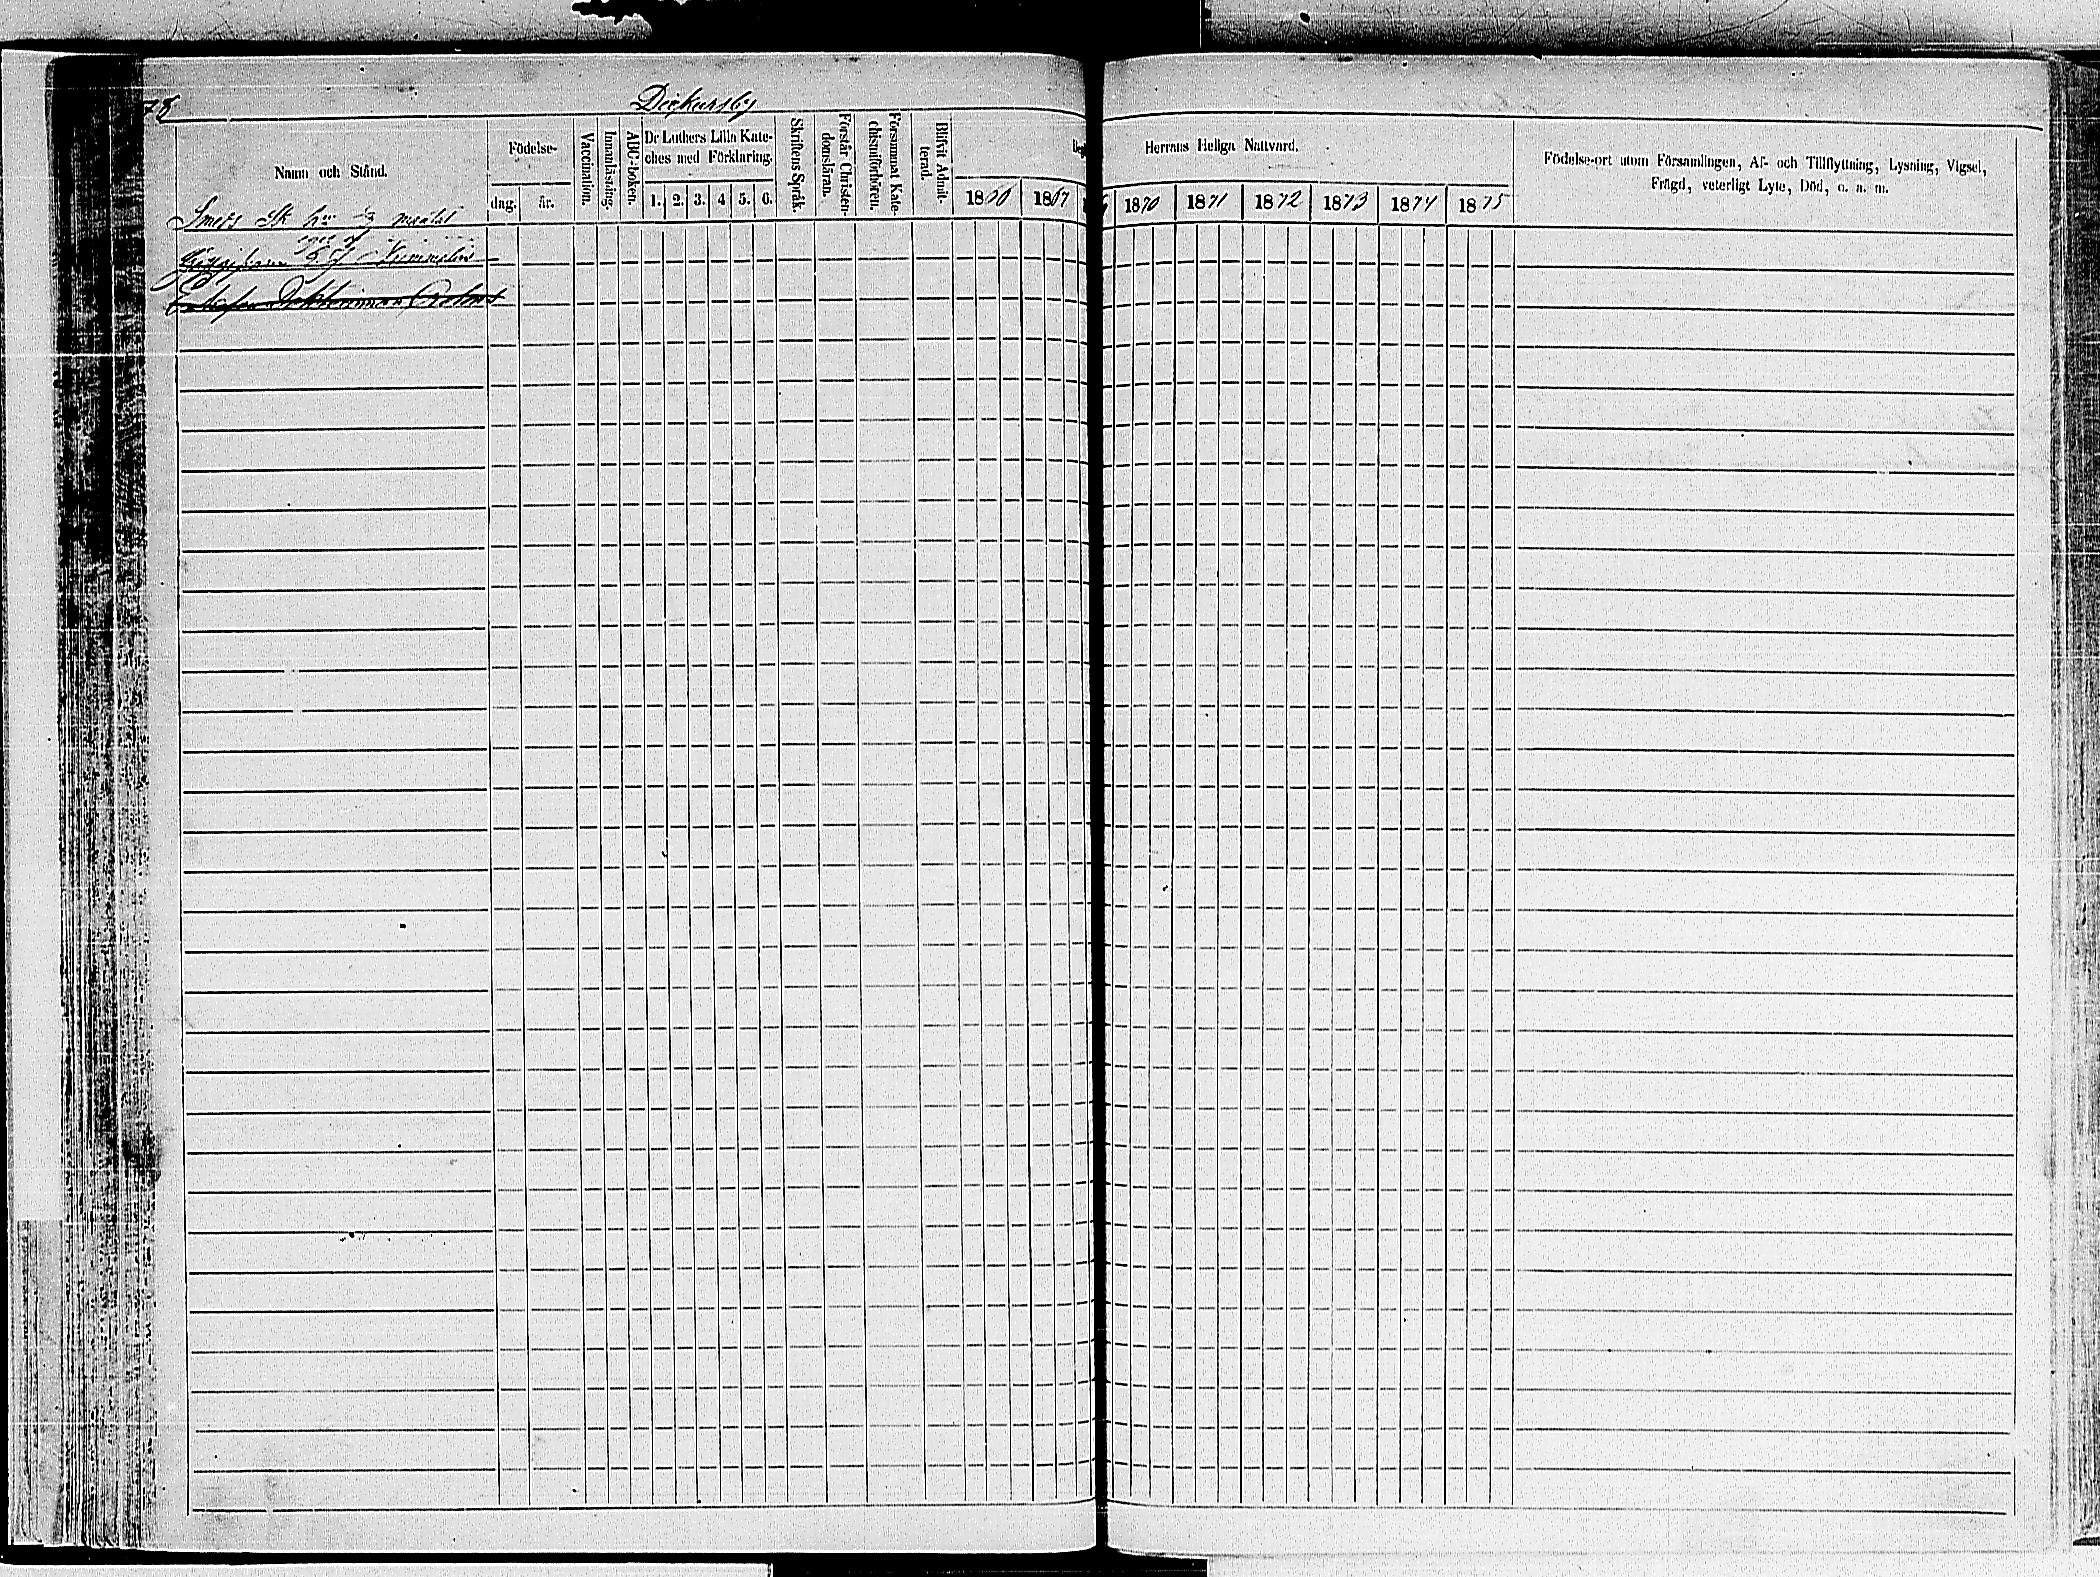 78
Dickursby
Namn och Stånd.
Födelse-
dag. år.
Vaccination.
Innanläsning.
ABC-boken.
Dr Luthers Lilla Kate-
ches med Förklaring.
1. 2. 3. 4 5. 6.
Skriftens Språk.
Förstår Christen-
domsläran.
Försummat Kate-
chismiförhören.
Blifvit Admit-
terad.
1867
Herrans Heliga Nattvard.
1870 1871 1872 1873 1874 1875
Födelse-ort utom Församlingen, Af- och Tillflyttning, Lysning, Vigsel,
Frägd, veterligt Lyte, Död, o. s. m.
Smeds Sk